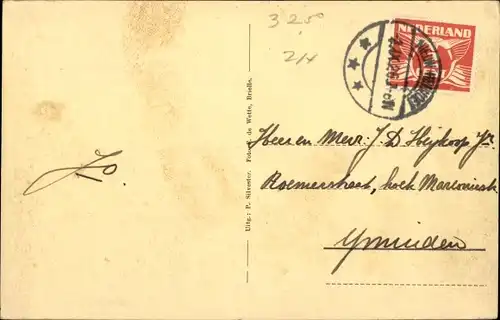 3 25⁰
2/4
NEDERLAND
Uitg.: P. Silvester. Fotogr. de Wette, Brielle.
Heer en Mevr. J. D Heijkoop Jr.
Roemerstraat, hoek Marconistr.
Ymuiden
Jo.